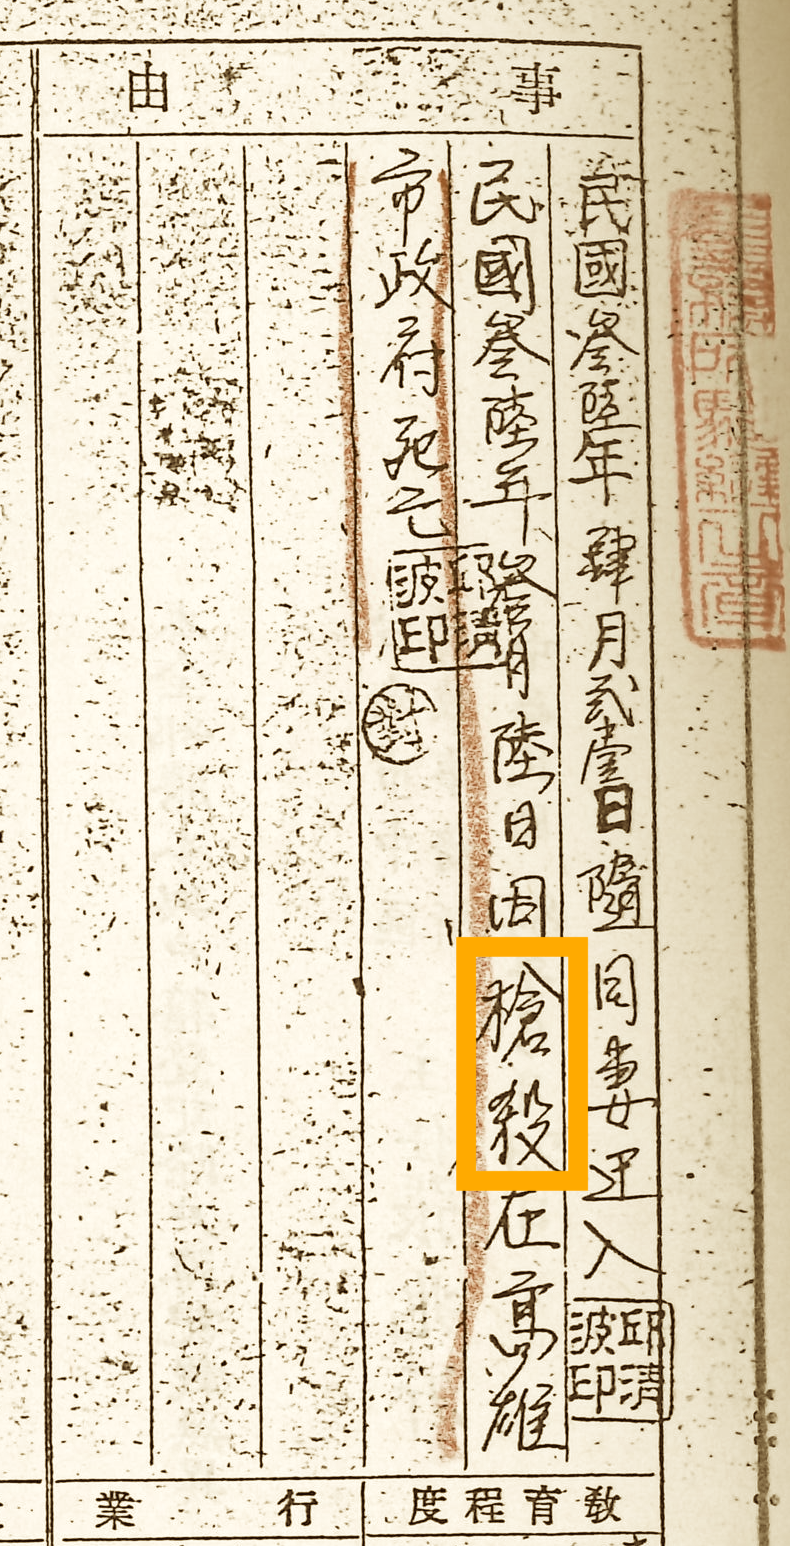 事由
民國叁陸年肆月弍壹日隨同妻迁入
邱清波印
民國叁陸年叁月陸日因槍殺在高雄
市政府死亡
邱清波印
教育程度
行業